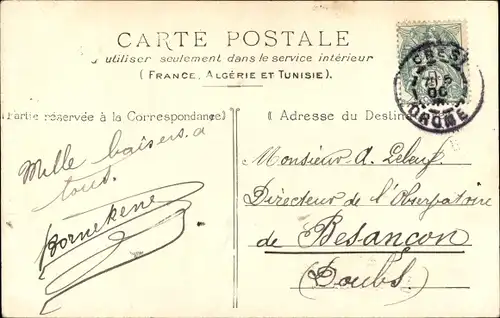 CARTE POSTALE
utiliser seulement dans le service intérieur
(FRANCE, ALGÉRIE ET TUNISIE).
CREST
DROME
(Partie réservée à la Correspondance)
Adresse du Destin
Mille baisers a
tous.
Monsieur A.
Directeur de l'Observatoire
de Besançon
(Doubs)